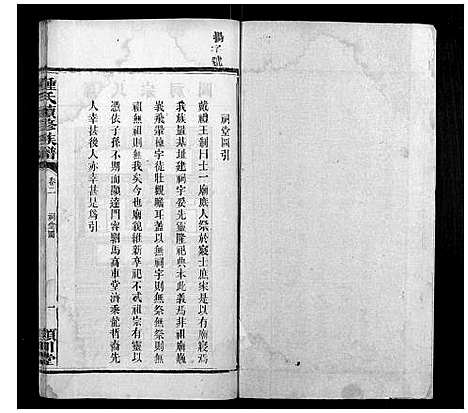 揚字號
祠堂圖引
戴禮王制曰士一廟庶人祭於寢士庶宋是以有廟寢焉
我族量基址建祠宇爰先靈隆祀典本此義焉非祖廟巍
峩飛甍極宇徒壯觀瞻耳蓋以無祠宇則無祭無祭則無
祖無祖則無我矣今也廟貌維新享祀不忒祖宗有靈以
憑依子孫不期而顯達門容駟馬高車堂濟乘龍哲裔先
人幸甚後人亦幸甚是為引
鍾氏續修族譜
卷二
祠堂圖
一
潁川堂